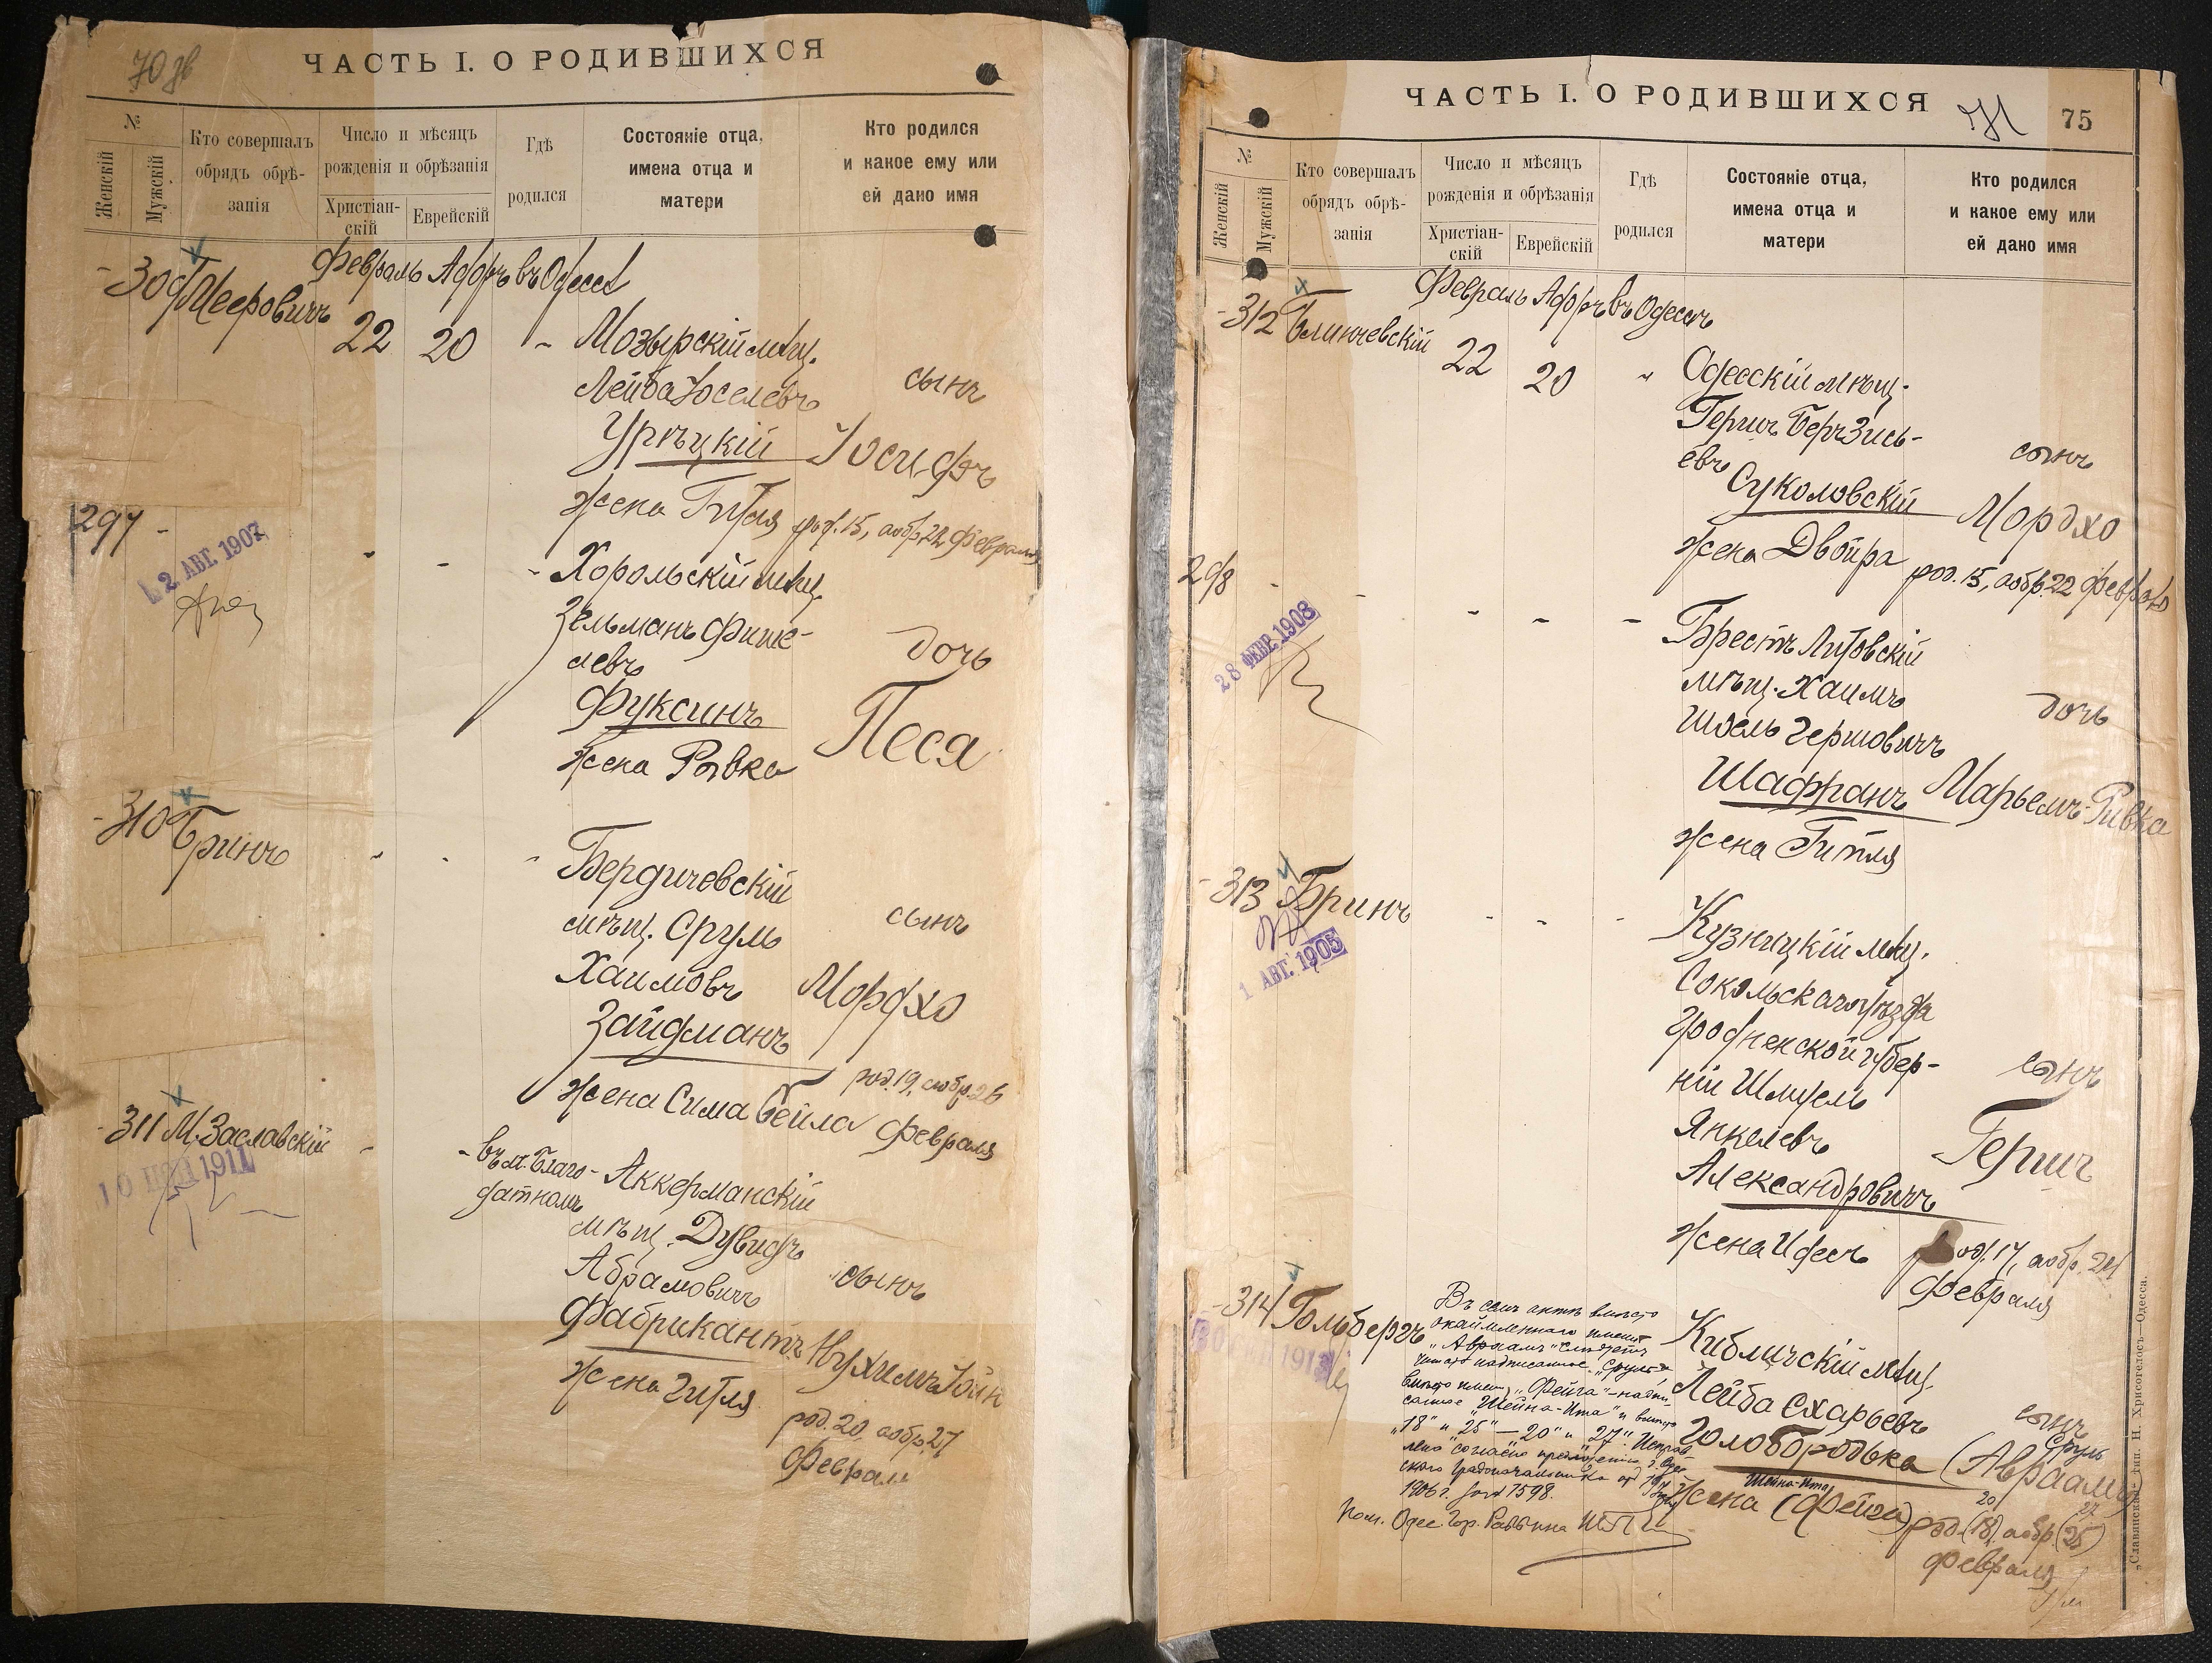 70 об
ЧАСТЬ I. О РОДИВШИХСЯ
№
Женскій
Мужскій
Кто совершалъ
обрядъ обрѣ-
занія
Число и мѣсяцъ
рожденія и обрѣзанія
Христіан-
скій
Еврейскій
Гдѣ
родился
Состояніе отца,
имена отца и
матери
Кто родился
и какое ему или
ей дано имя
Февраль Адаръ въ Одессѣ
309 Мееровичъ
22 20 Мозырскій мѣщ.
Лейба Іоселевъ
сынъ
Урѣцкій Іосифъ
жена Гитля род. 15, а обр. 22 февраля
297
2 АВГ. 1907
Хорольскій мѣщ.
Зельманъ Фише-
левъ
дочь
Фуксинъ
Песя
жена Ривка
310 Бринъ
Бердичевскій
мѣщ. Сруль
сынъ
Хаимовъ
Мордхо
Зайдманъ
род. 19, а обр. 26
жена Сима Бейла февраля
311 М. Заславскій
1911
въ м. Благо-
датномъ
Аккерманскій
мѣщ. Дувидъ
Абрамовичъ
сынъ
Фабрикантъ Нухимъ
жена Гитля
род. 20, а обр. 27
февраля
ЧАСТЬ I. О РОДИВШИХСЯ
71
75
№
Женскій
Мужскій
Кто совершалъ
обрядъ обрѣ-
занія
Число и мѣсяцъ
рожденія и обрѣзанія
Христіан-
скій
Еврейскій
Гдѣ
родился
Состояніе отца,
имена отца и
матери
Кто родился
и какое ему или
ей дано имя
Февраль Адаръ въ Одессѣ
312 Блинчевскій
22 20 Одесскій мѣщ.
Гершъ Беръ Зись-
евъ
сынъ
Суколовскій Мордхо
жена Двойра род. 15, а обр. 22 февраля
298
28 ФЕВР. 1908
Брестъ Литовскій
мѣщ. Хаимъ
Шоель Гершовичъ
дочь
Шафранъ Марьемъ-Ривка
жена Гитля
313 Бринъ
1 АВГ. 1905
Кузницкій мѣщ.
Сокольскаго уѣзда
Гродненской губер-
ніи Шмуель
сынъ
Янкелевъ
Гершъ
Александровичъ
жена Идесъ
род. 17, а обр. 24
февраля
314 Гольбергъ
Въ семъ актѣ вмѣсто
окаймленнаго имени
„Авраамъ“ слѣдуетъ
читать надписанное „Сруль“ а
вмѣсто имени „Фейга“ – надпи-
санное „Шейна-Ита“ и вмѣсто
„18“ и „25“ – „20“ и „27“. Исправ-
лено согласно предложенію Одес-
скаго Градоначальника от
1906 г. за № 7598.
Пом. Одес. Гор. Раввина
Кибличскій мѣщ.
Лейба Схарьевъ
сынъ
Сруль
Голобородька (Авраамъ)
Шейна-Ита
жена (Фейга)
20 27
род. (18) а обр. (25)
февраля
„Славянская“ тип. Н. Хрисогелосъ—Одесса.